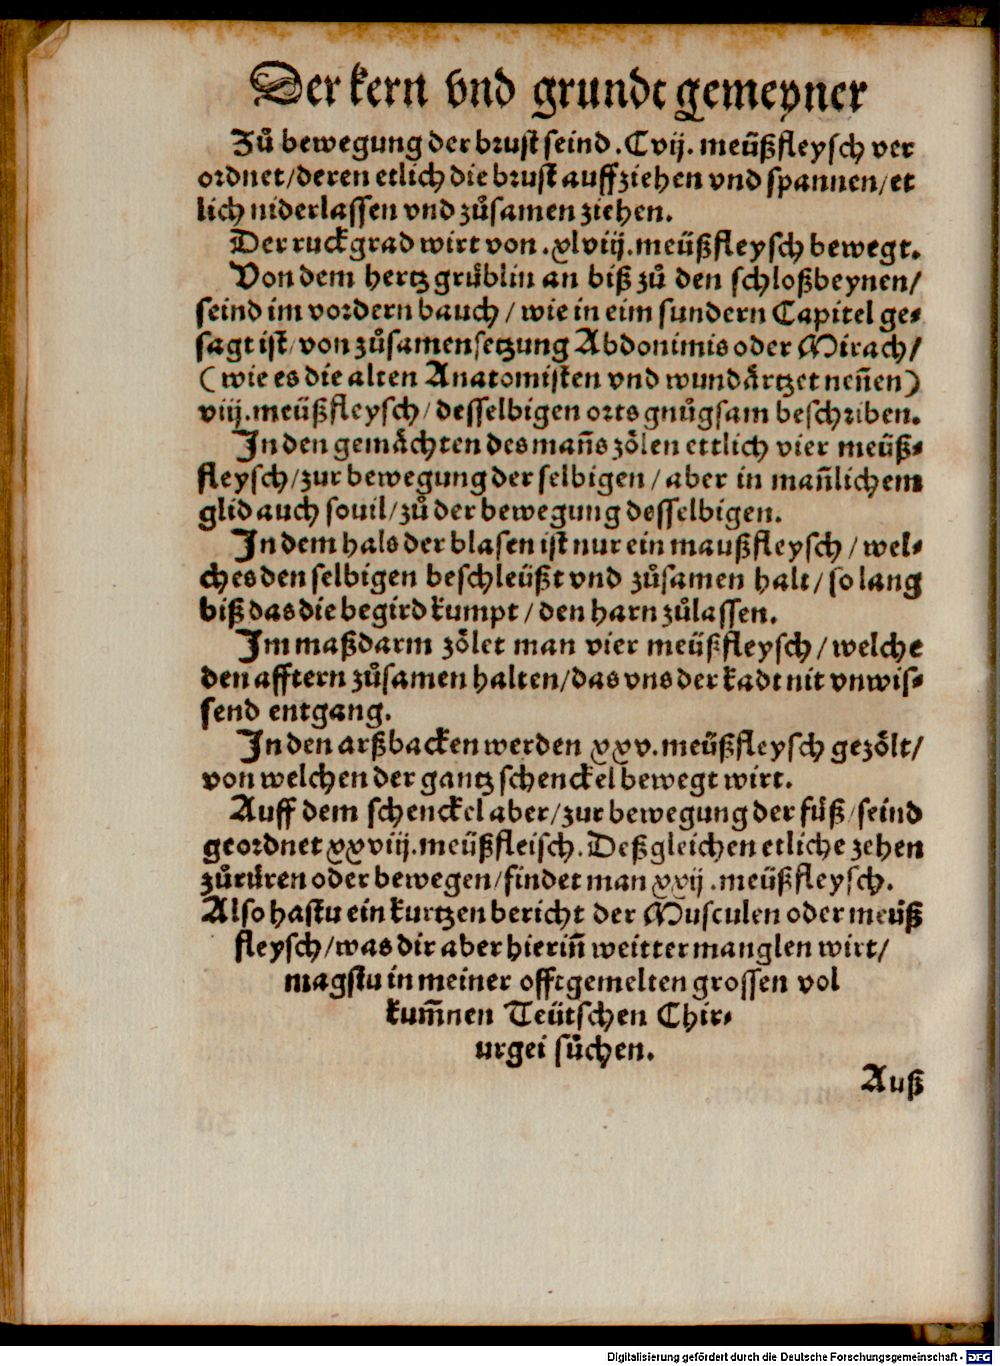 Der kern vnd grundt gemeyner
Zů bewegung der brust seind .Cvij. meüßfleysch ver
ordnet/deren etlich die brust auffziehen vnd spannen/et
lich niderlassen vnd zůsamen ziehen.
Der ruckgrad wirt von .xlviij.meüßfleysch bewegt.
Von dem hertzgrüblin an biß zů den schloßbeynen/
seind im vordern bauch/wie in eim sundern Capitel ge⸗
sagt ist/von zůsamensetzung Abdonimis oder Mirach/
(wie es die alten Anatomisten vnd wundärtzet neñen)
viij.meüßfleysch/desselbigen orts gnůgsam beschriben.
In den gemächten des mañs zölen ettlich vier meüß⸗
fleysch/zur bewegung der selbigen/aber in mañlichem
glid auch souil/zů der bewegung desselbigen.
In dem hals der blasen ist nur ein maußfleysch/wel⸗
ches den selbigen beschleüßt vnd zůsamen halt/so lang
biß das die begird kumpt/den harn zůlassen.
Im maßdarm zölet man vier meüßfleysch/welche
den afftern zůsamen halten/das vns der kadt nit vnwis⸗
send entgang.
In den arßbacken werden xxv.meüßfleysch gezölt/
von welchen der gantz schenckel bewegt wirt.
Auff dem schenckel aber/zur bewegung der füß/seind
geordnet xxviij.meüßfleisch.Deßgleichen etliche zehen
zůrüren oder bewegen/findet man xxij.meüßfleysch.
Also hastu ein kurtzen bericht der Musculen oder meüß
fleysch/was dir aber hieriñ weitter manglen wirt/
magstu in meiner offtgemelten grossen vol
kum̃nen Teütschen Chir⸗
urgei sůchen.
Auß
Digitalisierung gefördert durch die Deutsche Forschungsgemeinschaft - DFG